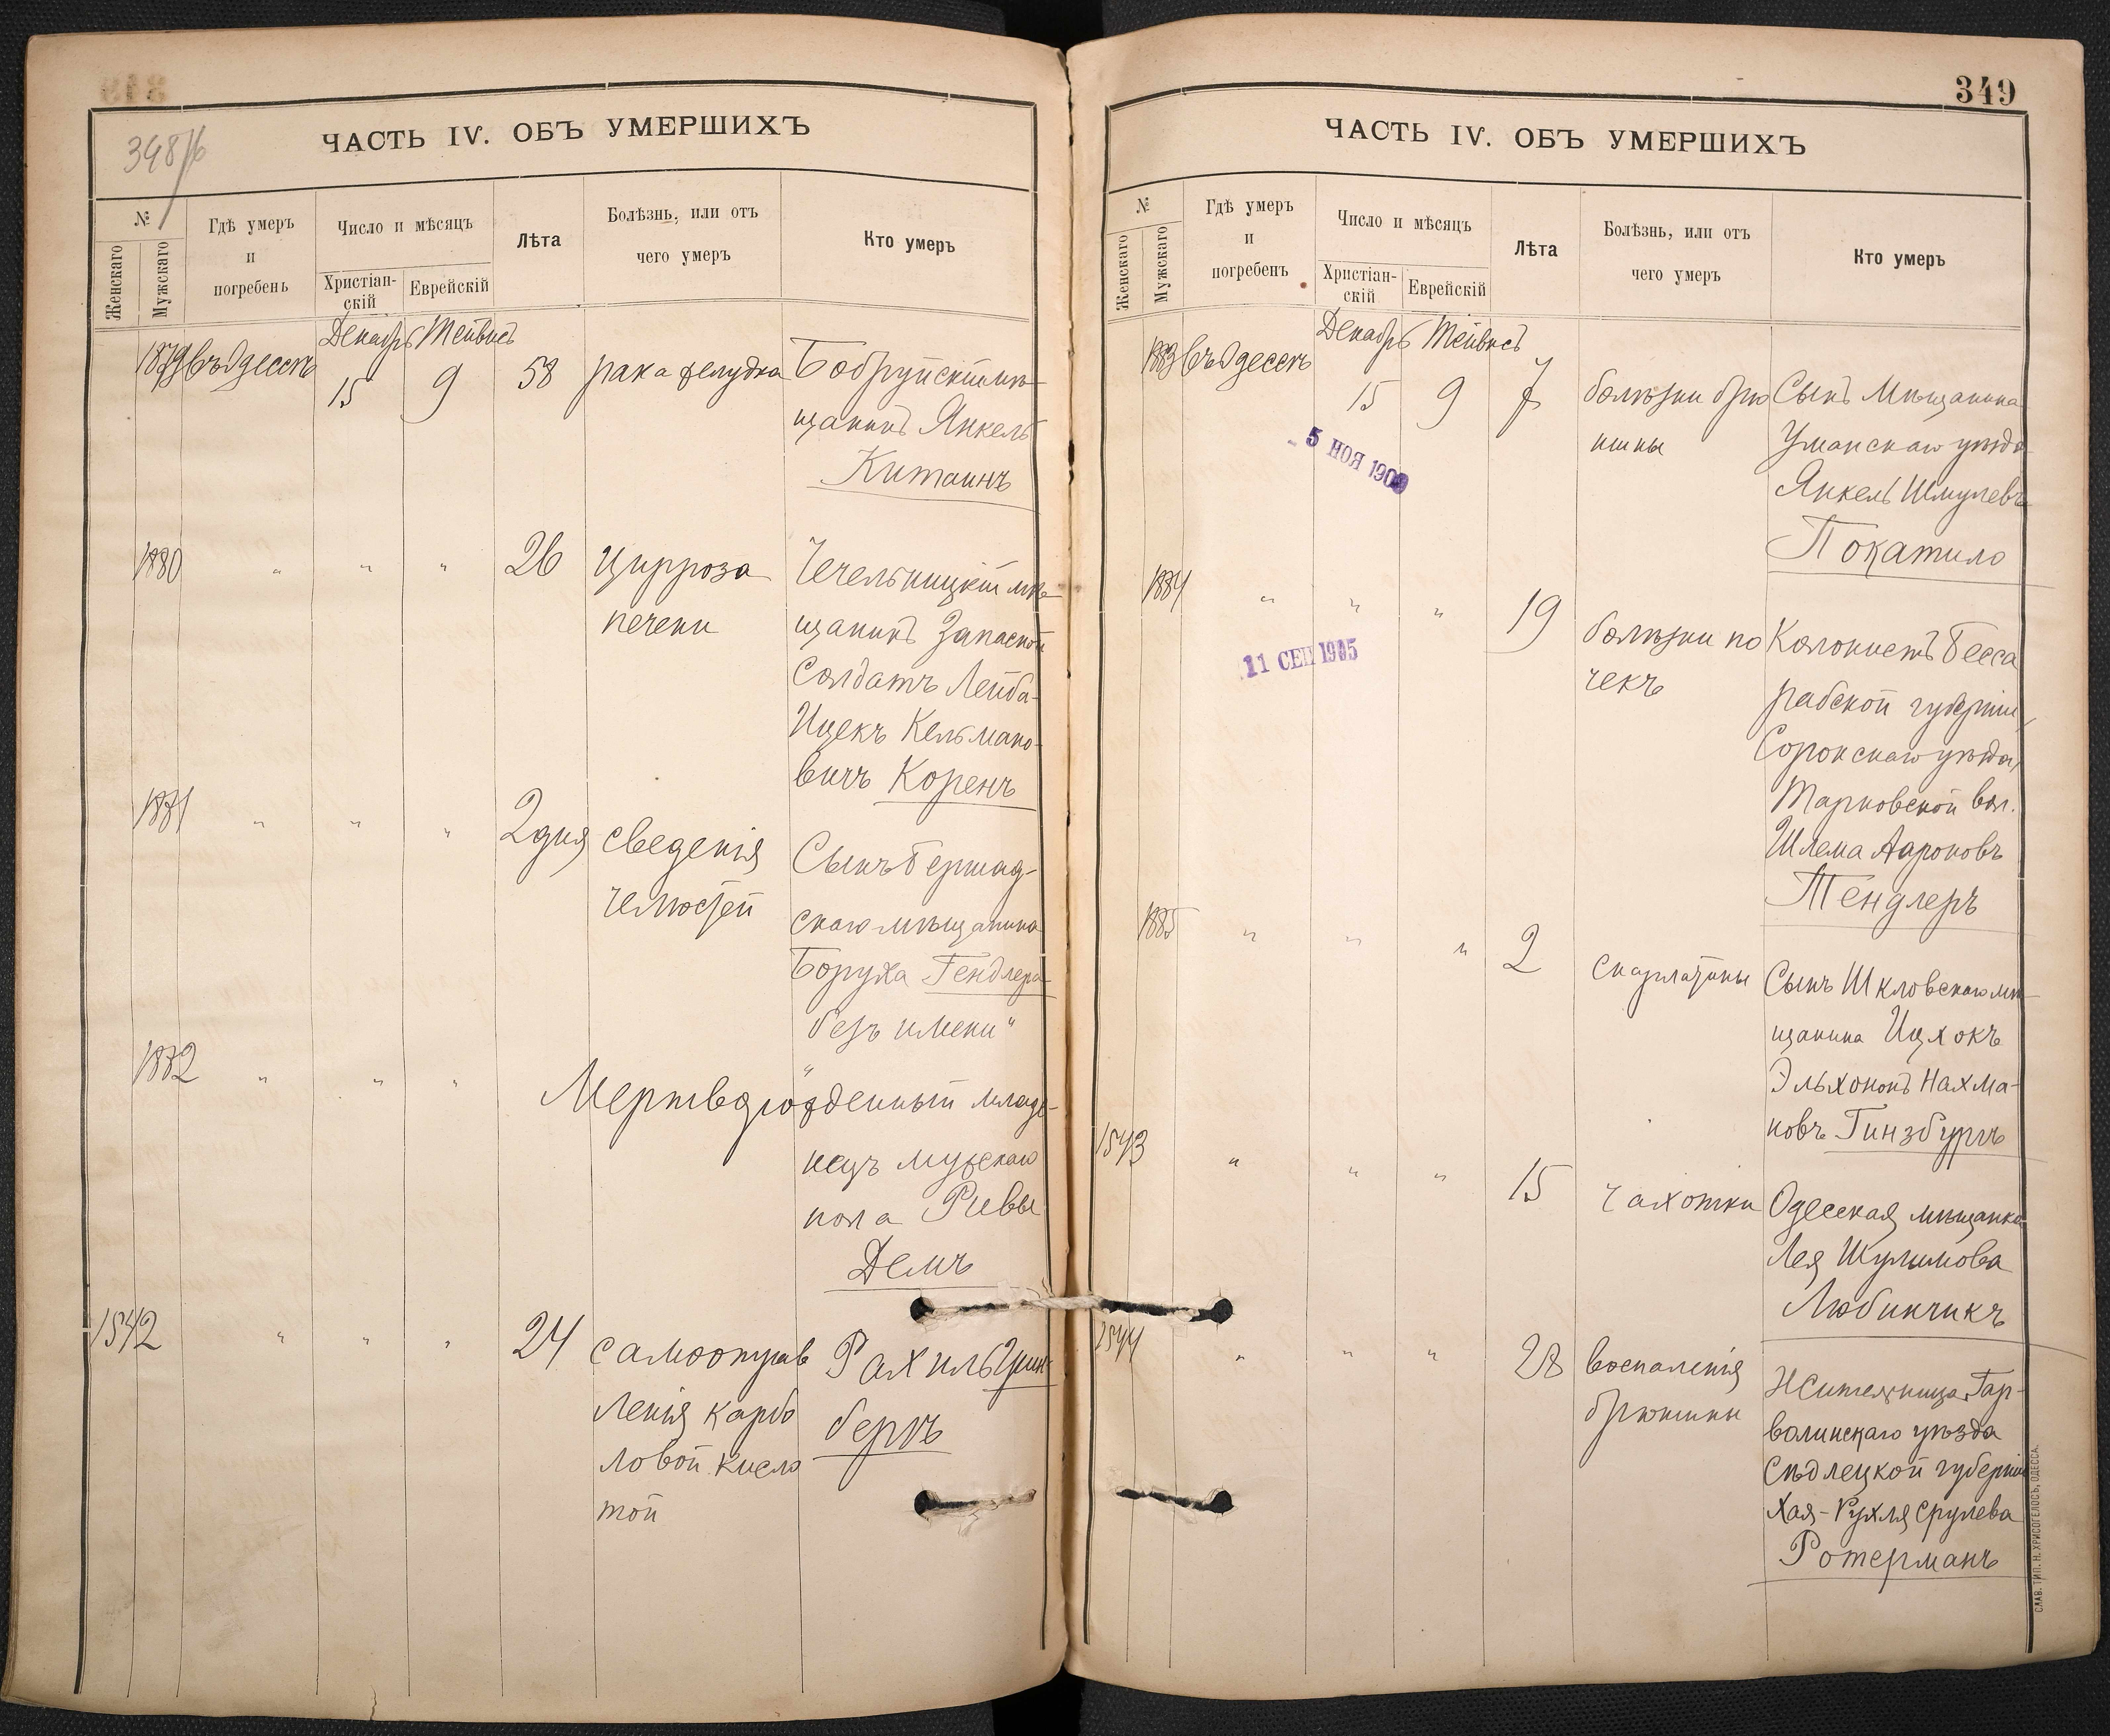 348/б
ЧАСТЬ IV. ОБЪ УМЕРШИХЪ
№
Женскаго
Мужскаго
Гдѣ умеръ
и
погребенъ
Число и мѣсяцъ
Христіан-
скій
Еврейскій
Лѣта
Болѣзнь, или отъ
чего умеръ
Кто умеръ
Декабрь Тейвисъ
1879 въ Одессѣ 15 9 58 рака желудка Бобруйскій мѣ-
щанинъ Янкель
Китаинъ
1880 " " " 26 цирроза Чечельницкій мѣ-
печени щанинъ Запасной
Солдатъ Лейба-
Ицекъ Кельмано-
вичъ Коренъ
1881 " " " 2 дня сведенія Сынъ Бершад-
челюстей скаго мѣщанина
Боруха Гендлера
"безъ имени"
1882 " " " Мертворожденный младе-
нецъ мужскаго
пола Ривы
Демъ
1542 " " " 24 самоотрав Рахиль Грин
ленія карбо бергъ
ловой кисло
той
349
ЧАСТЬ IV. ОБЪ УМЕРШИХЪ
№
Женскаго
Мужскаго
Гдѣ умеръ
и
погребенъ
Число и мѣсяцъ
Христіан-
скій
Еврейскій
Лѣта
Болѣзнь, или отъ
чего умеръ
Кто умеръ
Декабрь Тейвисъ
1883 въ Одессѣ 15 9 7 болѣзни брю Сынъ Мѣщанина
шины Уманскаго уѣзда
5 НОЯ
Янкель Шмулевъ
Покатило
1884 " " " 19 болѣзни по Колонистъ Бесса
11 СЕН 1905
чекъ рабской губерніи,
Сорокскаго уѣзда,
Марковской вол.
Шлема Ароновъ
Тендлеръ
1885 " " " 2 скарлатины Сынъ Шкловскаго мѣ-
щанина Ицхокъ
Эльхононъ Нахма-
новъ Гинзбургъ
1543 " " " 15 чахотки Одесская мѣщанка
Лея Шулимова
Любинчикъ
1544 " " " 28 воспаленія Жительница Гар-
брюшины волинскаго уѣзда
Сѣдлецкой губерніи
Хая-Рухля Срулева
Ротерманъ
СЛАВ. ТИП. Н. ХРИСОГЕЛОСЪ, ОДЕССА.